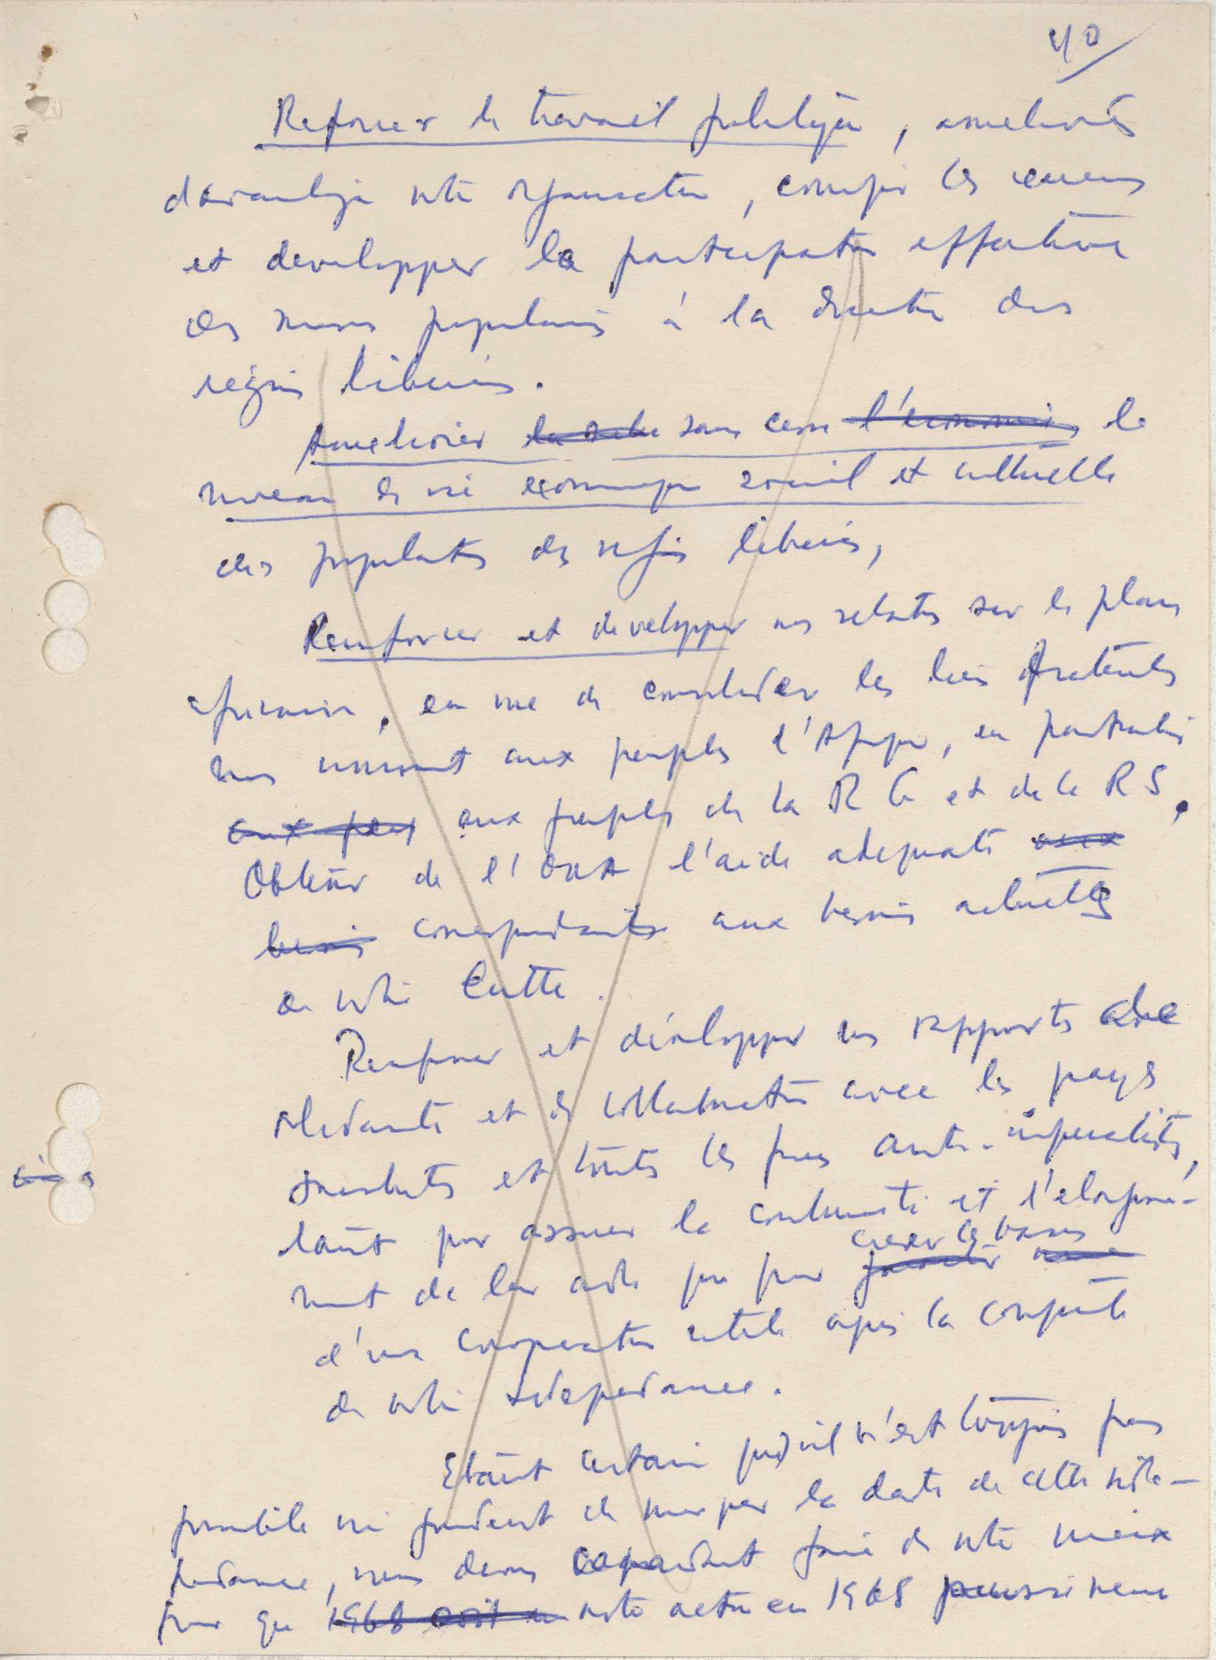 40
Renforcer le travail politique, améliorer
davantage notre organisation, corriger les erreurs
et developper la participation effective
des masses populaires à la direction des
régions libérées.
Ameliorer sans cesse l'économie le
niveau de vie economique social et culturelle
des populations des régions libérées,
Renforcer et developper nos relations sur le plan
africain, en vue de consolider les liens fraternels
nous unissant aux peuples d'Afrique, en particulier
aux peuples de la RG et de la RS.
Obtenir de l'OUA l'aide adequate
besoins correspondante aux besoins actuelles
de notre lutte.
Renforcer et développer nos rapports de
solidarité et de collaboration avec les pays
socialistes et toutes les forces anti-imperialistes,
tant pour assurer la continuité et l'elargisse-
ment de leur aide que pour creer les bases
d'une cooperation utile après la conquête
de notre independance.
Etant certain qu'il n'est toujours pas
possible ni prudent de marquer la date de cette indé-
pendance, nous devons cependant faire de notre mieux
pour que 1968 soit notre action en 1968 puisse